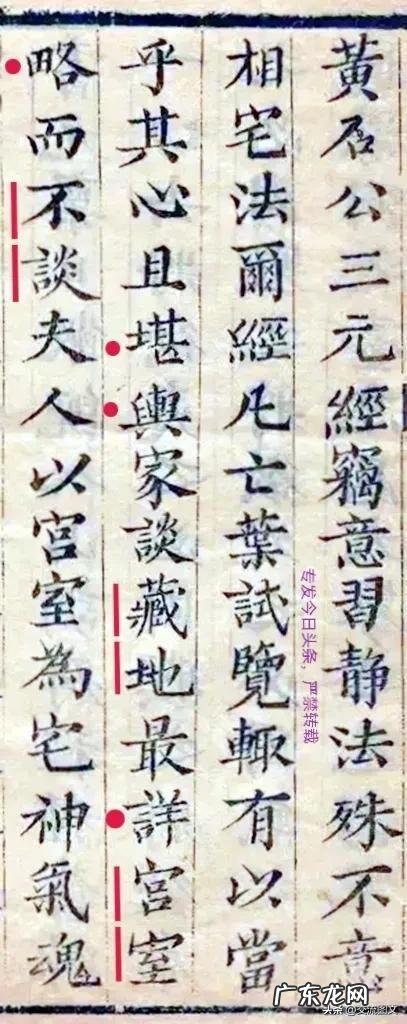 黃石公三元經竊意習静法殊不意
相宅法爾經凡亡葉試覽輒有以當
乎其心且堪輿家談藏地最詳宫室
略而不談夫人以宫室為宅神氣魂
专发今日头条，严禁转载
广东龙网